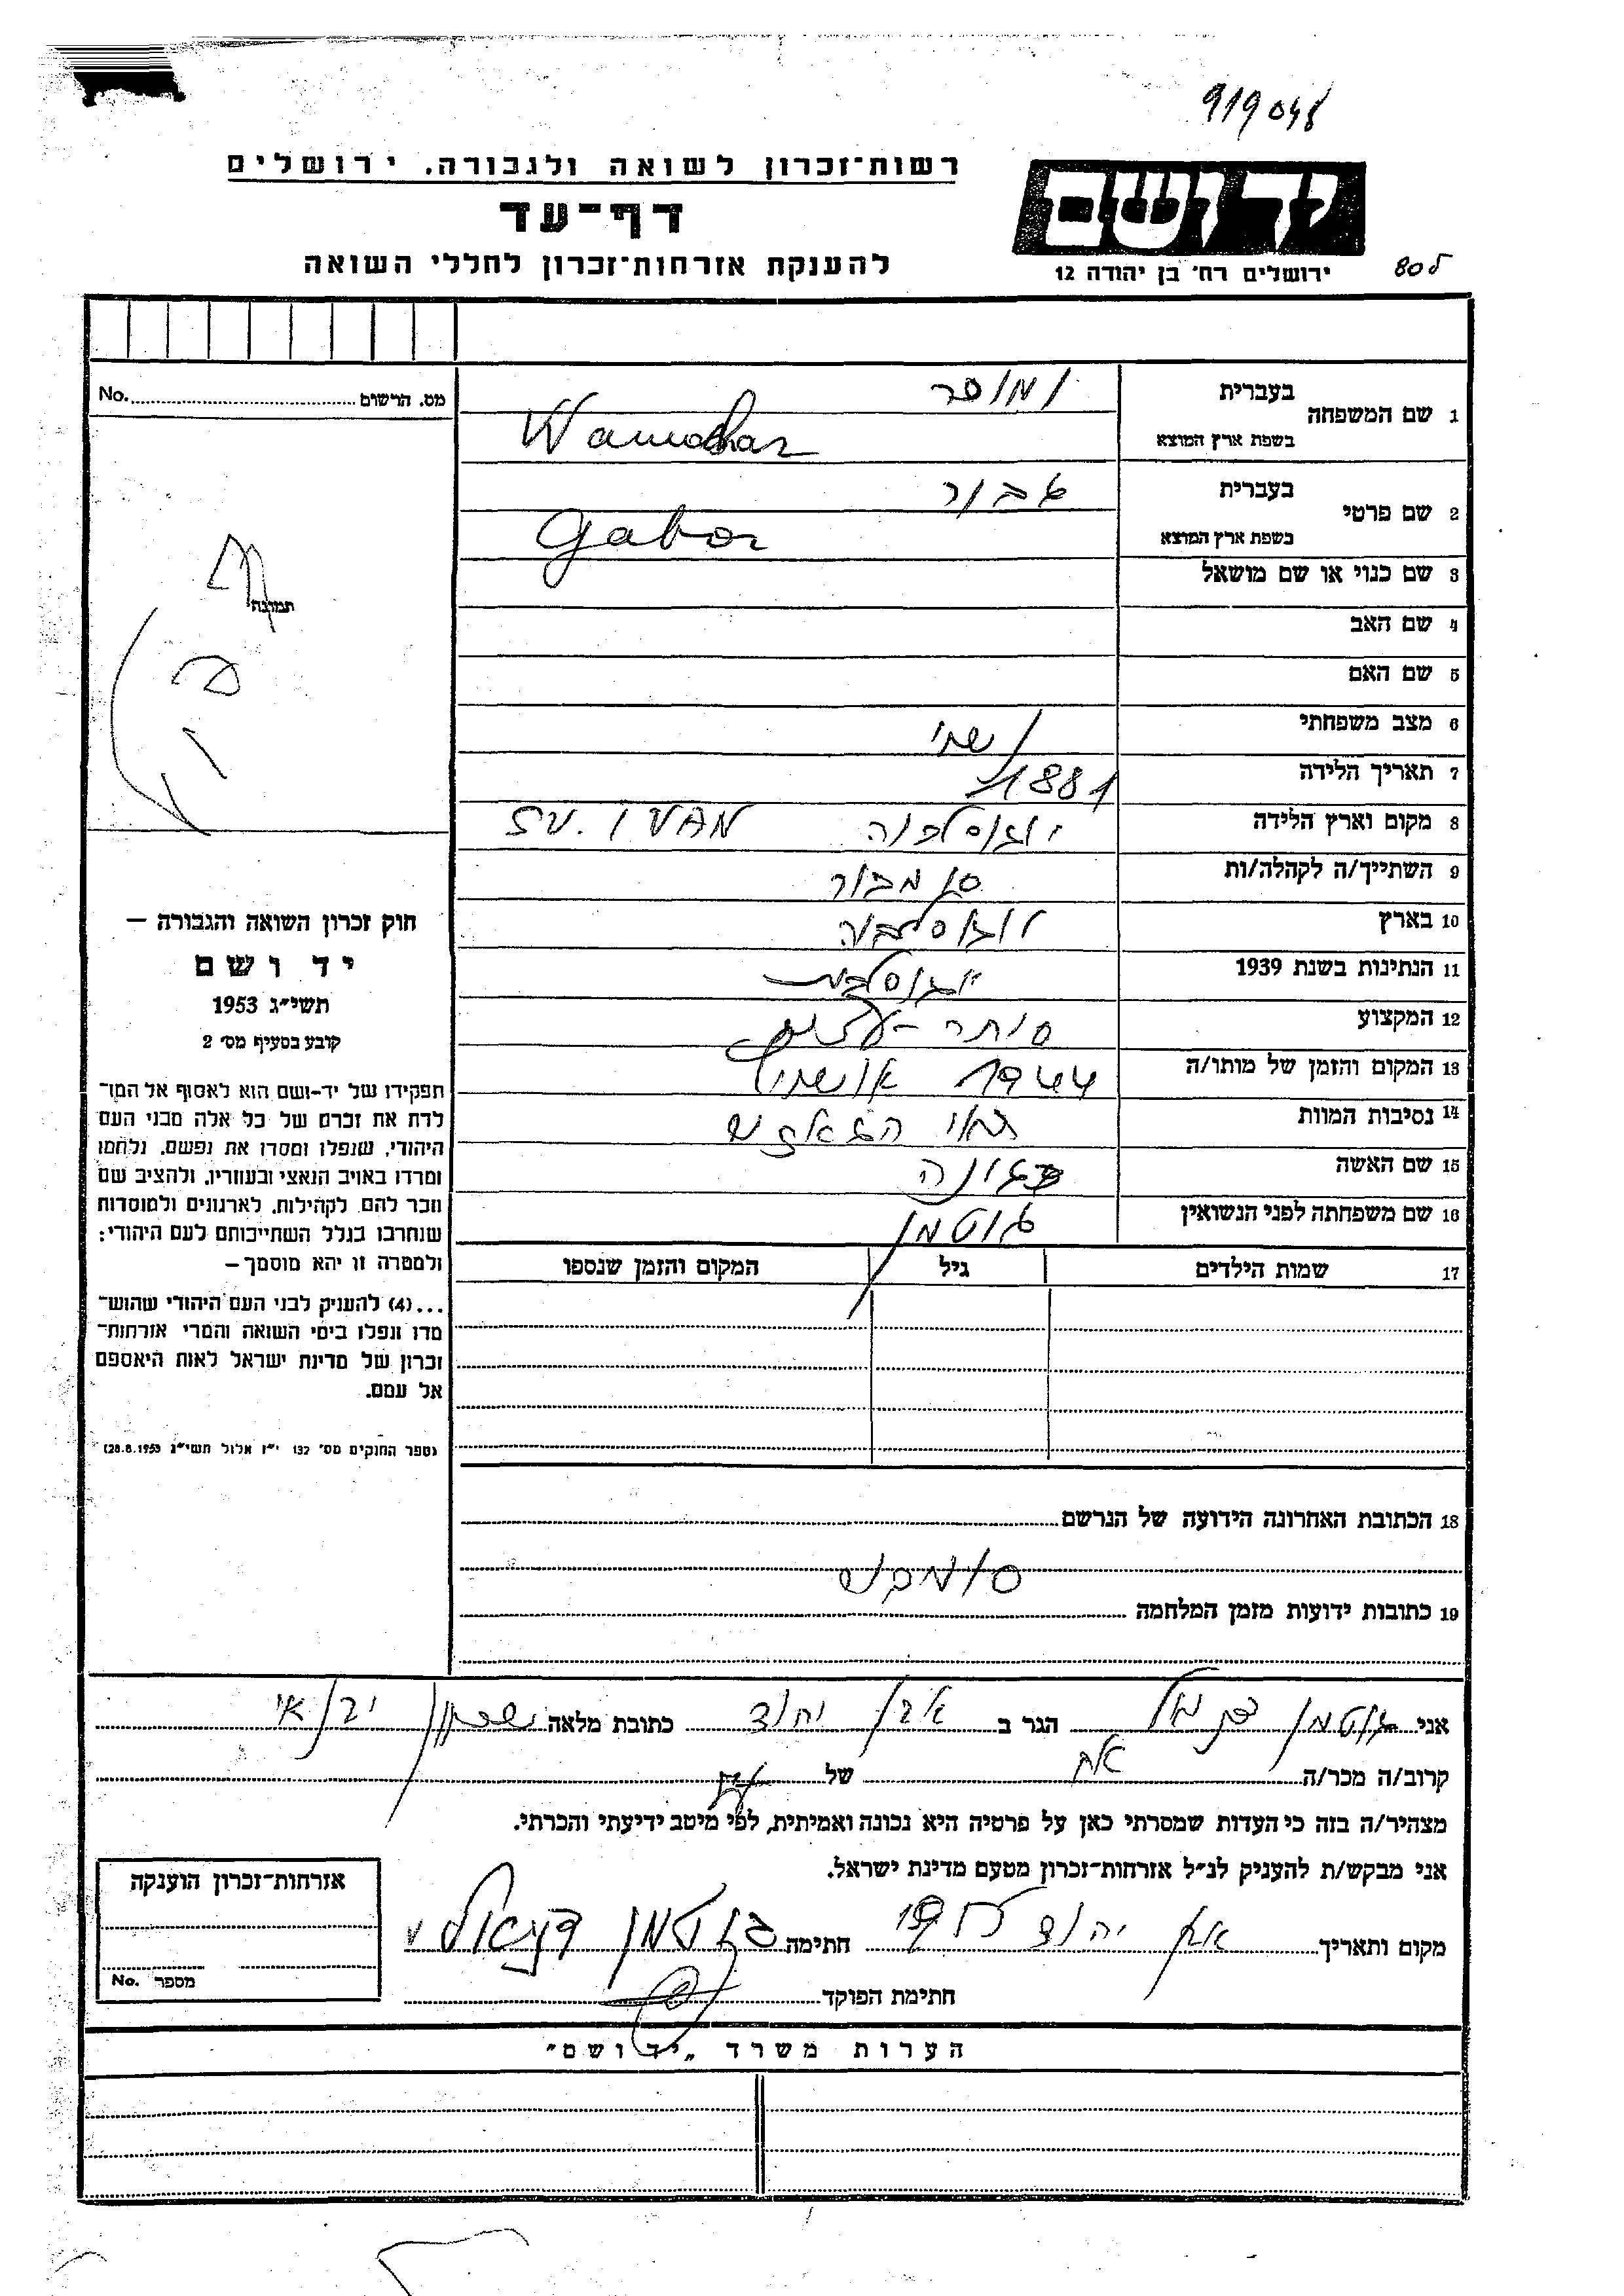 919048
רשות־זכרון לשואה ולגבורה, ירושלים
דף־עד
להענקת אזרחות־זכרון לחללי השואה
יד ושם
ירושלים רח׳ בן יהודה 12
80
No. מס. הרשום
1 שם המשפחה
בעברית
בשפת ארץ המוצא
2 שם פרטי
בעברית
Gabor
בשפת ארץ המוצא
3 שם כנוי או שם מושאל
4 שם האב
5 שם האם
6 מצב משפחתי נשוי
7 תאריך הלידה 1881
8 מקום וארץ הלידה יוגוסלביה SV. IVAN
9 השתייך/ה לקהלה/ות סומבור
10 בארץ יוגוסלביה
11 הנתינות בשנת 1939 יוגוסלבית
12 המקצוע סוחר-עצים
13 המקום והזמן של מותו/ה 1944 אושויץ
14 נסיבות המוות תאי הגאזים
15 שם האשה
16 שם משפחתה לפני הנשואין גוטמן
17 שמות הילדים גיל המקום והזמן שנספו
18 הכתובת האחרונה הידועה של הנרשם
19 כתובות ידועות מזמן המלחמה
תמונה
חוק זכרון השואה והגבורה –
יד ושם
תשי״ג 1953
קובע בסעיף מס׳ 2
תפקידו של יד-ושם הוא לאסוף אל המו־
לדת את זכרם של כל אלה מבני העם
היהודי, שנפלו ומסרו את נפשם, נלחמו
ומרדו באויב הנאצי ובעוזריו, ולהציב שם
וזכר להם לקהילות, לארגונים ולמוסדות
שנחרבו בגלל השתייכותם לעם היהודי:
ולמטרה זו יהא מוסמך –
...(4) להעניק לבני העם היהודי שהוש־
מדו ונפלו בימי השואה והמרי אזרחות־
זכרון של מדינת ישראל לאות היאספם
אל עמם.
(ספר החוקים מס׳ 132 י״ז אלול תשי״ג 28.8.1953)
אני גוטמן דניאל הגר ב אבן יהודה כתובת מלאה
קרוב/ה מכר/ה אח של
מצהיר/ה בזה כי העדות שמסרתי כאן על פרטיה היא נכונה ואמיתית, לפי מיטב ידיעתי והכרתי.
אני מבקש/ת להעניק לנ״ל אזרחות־זכרון מטעם מדינת ישראל.
מקום ותאריך אבן יהודה חתימה גוטמן דניאל
חתימת הפוקד
אזרחות־זכרון הוענקה
מספר No.
הערות משרד „יד ושם"